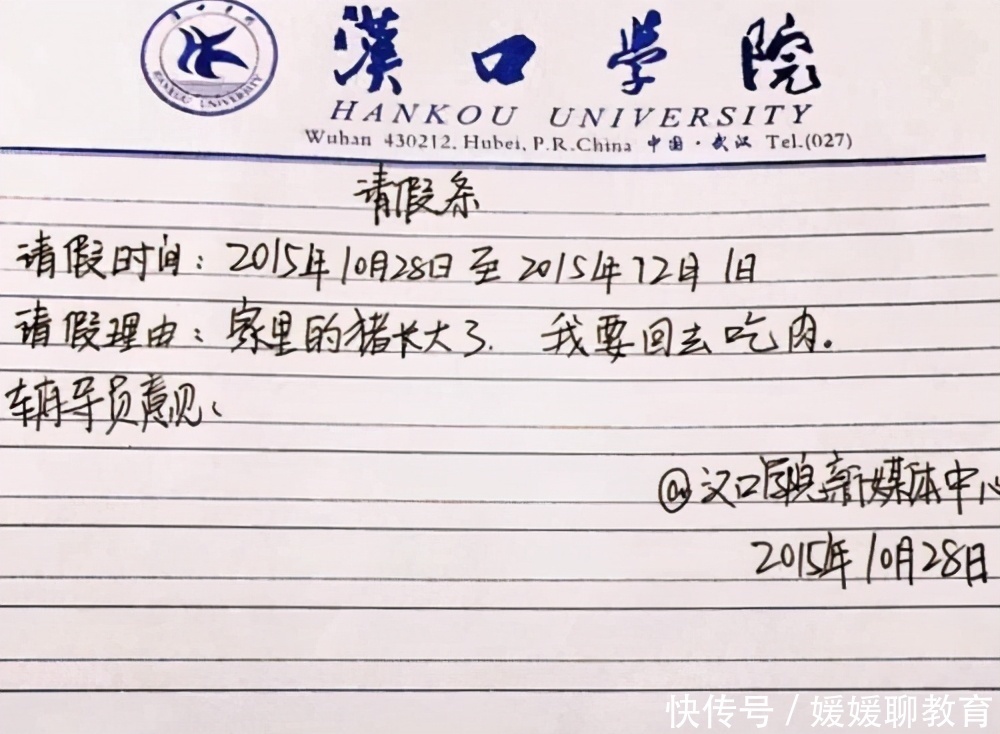 漢口学院
HANKOU UNIVERSITY
HANKOU UNIVERSITY
Wuhan 430212. Hubei, P.R.China 中国·武汉 Tel.(027)
请假条
请假时间：2015年10月28日至2015年12月1日
请假理由：家里的猪长大了. 我要回去吃肉。
辅导员意见：
@汉口学院新媒体中心
2015年10月28日
快传号/媛媛聊教育